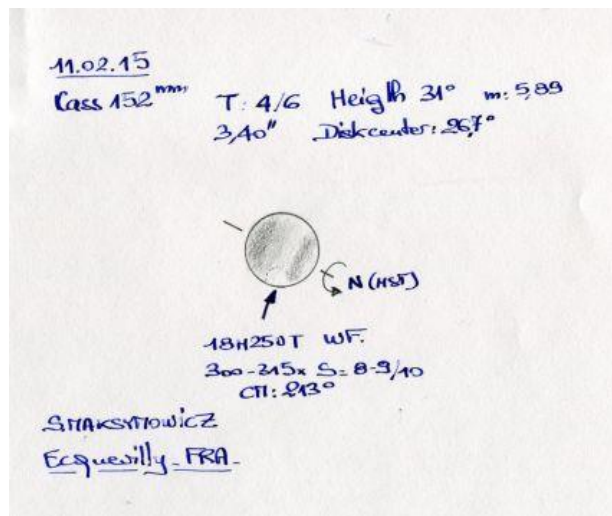 11.02.15
Cass 152mm T: 4/6 Heigth 31° m: 5,89
3,40" Diskcenter: 26,7°
N (HST)
18H250T WF.
300-315x S= 8-9/10
CM: 213°
S.MAKSYMOWICZ
Ecquevilly - FRA -